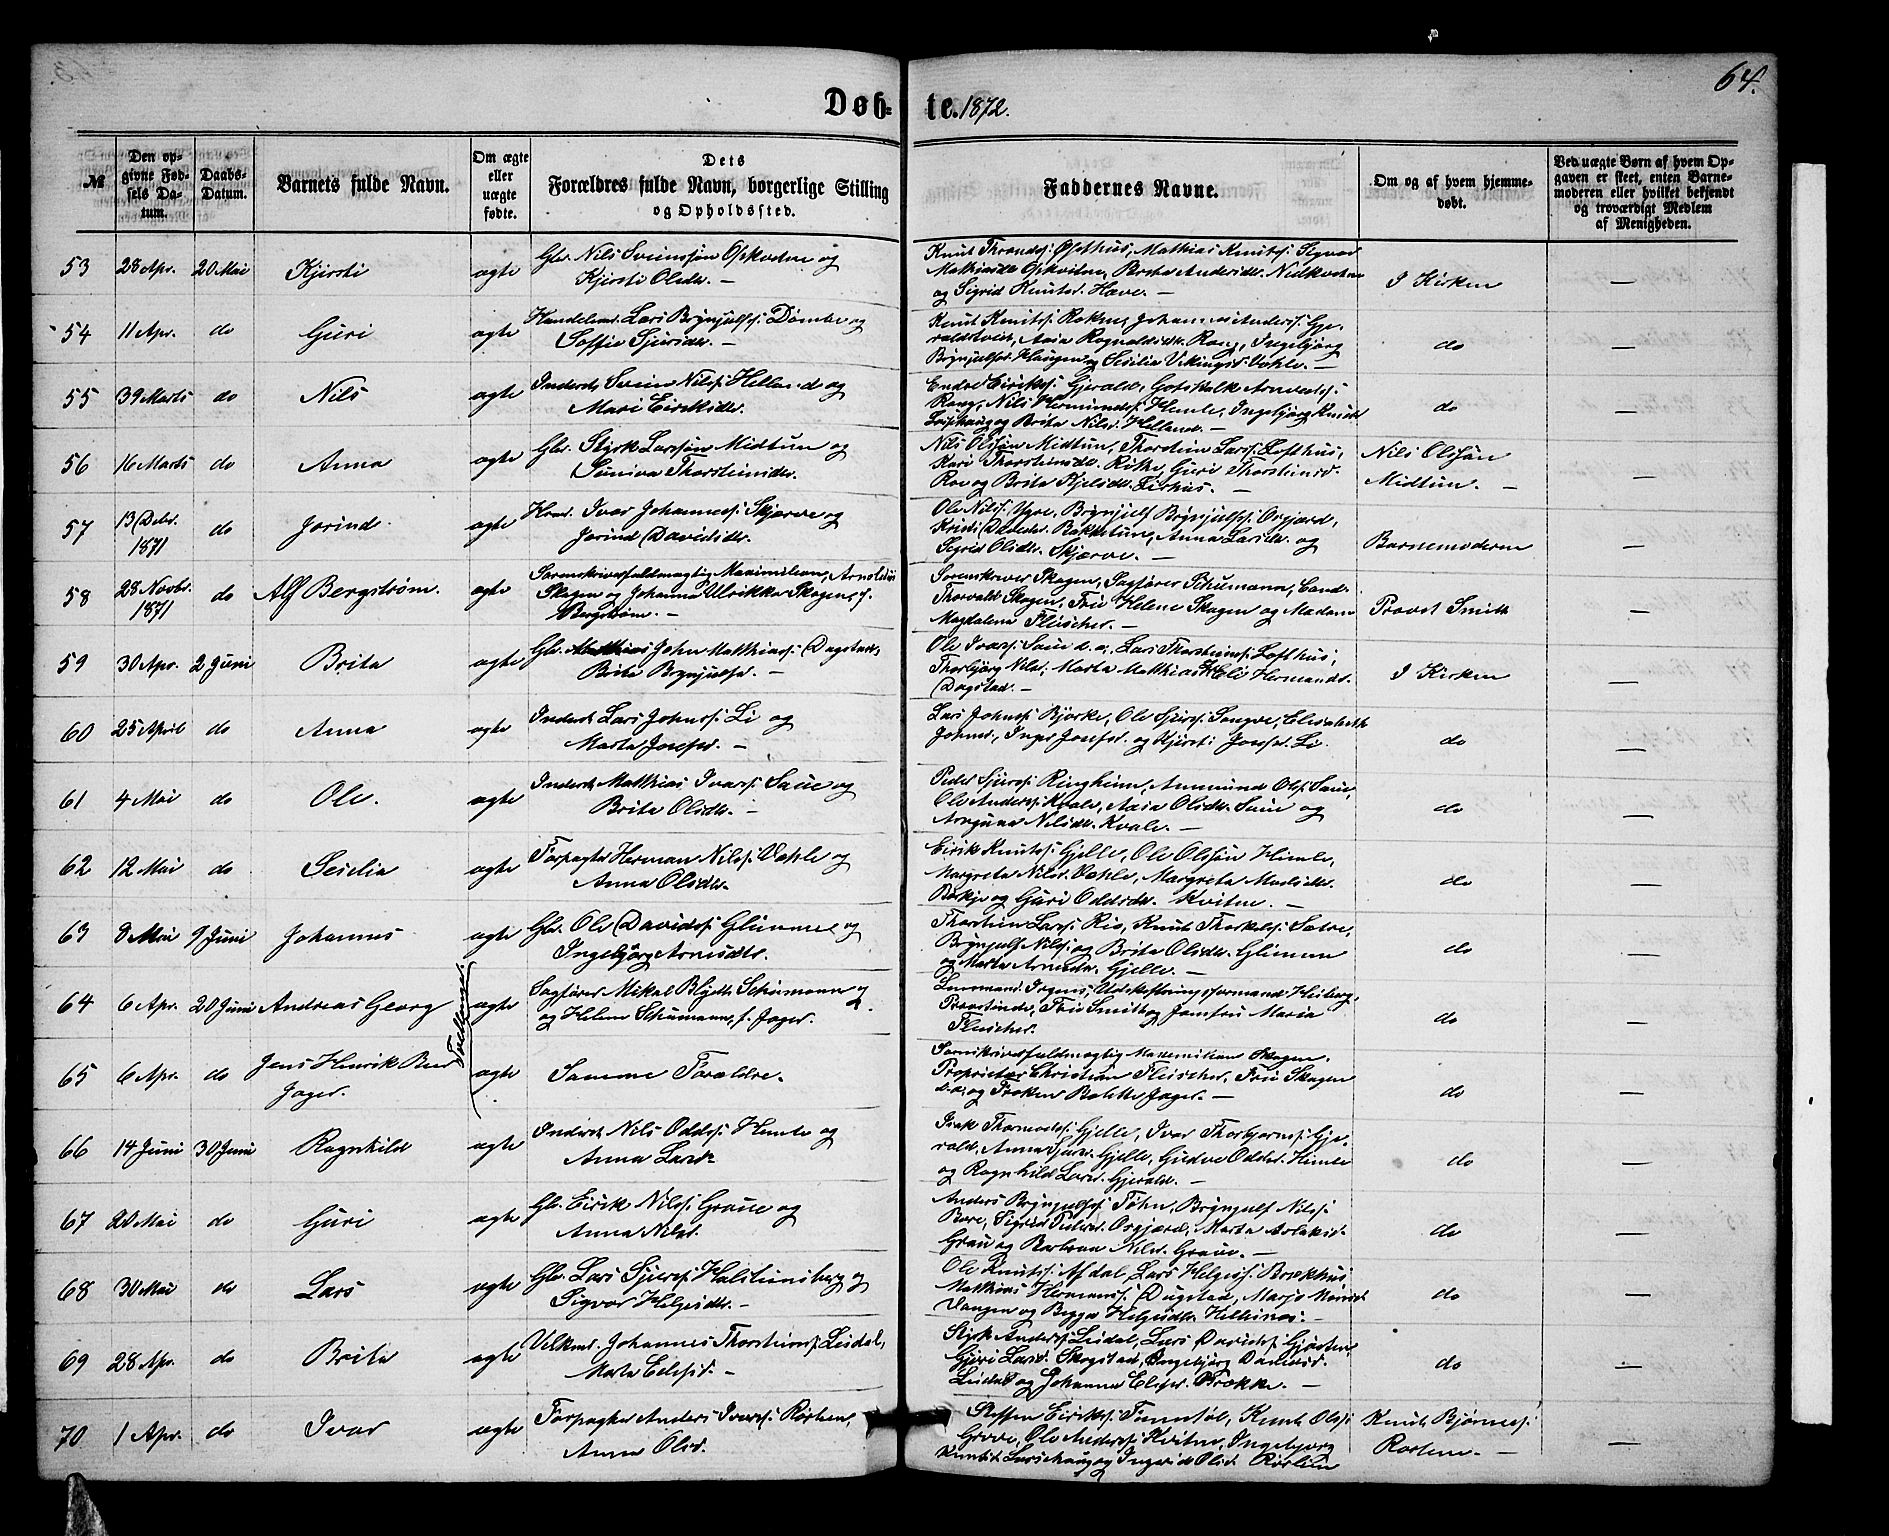 64.
Døb- te. 1872.
№
Den opgivne Fødsels Datum.
Daabs-Datum.
Barnets fulde Navn.
Om ægte eller uægte fødte.
Dets Forældres fulde Navn, borgerlige Stilling og Opholdssted.
Faddernes Navne.
Om og af hvem hjemmedøbt.
Ved uægte Børn af hvem Opgaven er skeet, enten Barnemoderen eller hvilket bekjendt og troværdigt Medlem af Menigheden.
53 28 Apr. 20 Mai Kjersti ægte Gbr. Nils Svensøn Opkvitne og
Kjersti Olsdr. —
Mathiasdr. Opkvitne, Brita Andersdr. Nedkvitne
og Sigrid Knutsd. Hæve. —
I Kirken —
54 11 Apr. do Guri ægte Handelsm. Lars Brynjulfs. Dømbe og
Soffie Sjursdr. —
Brynjulfsd. Haugen og Sesilia Vikingsd. Væhle. —
do —
55 39 Marts do Nils ægte Inderst Svein Nils. Helland og
Mari Eiriksdr.
Endre Eiriks. Gjerald, Gotskalk Arnvids.
Rong, Nils Hermunds. Hemle, Ingebjørg Knutsd.
og Brita Nilsd. Helland. —
do —
56 16 Marts do Anna ægte Gbr. Styrk Larssøn Midtun og
Suniva Thorsteinsdr.
Nils Olssøn Midtun, Thorstein Lars. Lofthus,
Kari Thorsteinsdr. Rikhe, Guri Thorsteinsd.
Roe og Brita Kjelsdr. Lirhus. —
Nils Olssøn
Midtun. —
—
57 13 Debr.
1871
do Jorind ægte Kmd. Ivar Johanness. Skjerve og
Jorind Davidsdr.
Ole Nils. Ygre, Brynjulf Brynjulfs. Orgjærd,
Bakketun, Anna Larsdr. og
Sigrid Olsdr. Skjerve. —
Barnemoderen —
58 28 Novbr.
1871
do Alf Bergstrøm. ægte Sorenskriverfuldmægtig Maximilian Arnoldus
Skagen og Johanna Ulrikka Skagen, f.
Bergstrøm. —
Sorenskriver Skagen, Sagfører Schumann, Cand.
Thorvald Skagen, Fru Helene Skagen og Madam
Magdalena Fleischer. —
Provst Smith —
59 30 Apr. 2 Juni Brita ægte Gbr. John Matthias. Dagstad,
Brita Brynjulfsd. —
Ole Ivars. Saue d. a., Lars Thorsteins. Lofthus,
Thorbjørg Nilsd., Marta Matthiasd. Eli Hermandsd.
Dagstad. —
I Kirken —
60 25 April do Anna ægte Inderst Lars Johns. Li og
Marta Josefsd. —
Lars Johns. Bjørke, Ole Sjurs. Songve, Elisabeth
Johnsd., Inga Josefsd. og Kjersti Josefsd. Li.
do —
61 4 Mai do Ole. ægte Inderst Matthias Ivars. Saue og
Brita Olsdr. —
Peder Sjurs. Ringheim, Ammund Ols. Saue,
Ole Anders. Kvale, Aasa Olsdr. Saue og
Arnguna Nilsdr. Kvale. —
do —
62 12 Mai do Sesilia ægte Forpagter Herman Nils. Væhle og
Anna Olsdr.
Eirik Knuts. Gjelle, Ole Olssøn Himle,
Margreta Nilsd. Væhle, Margreta Madsdr.
Bøkje og Guri Oddsdr. Kvitne. —
do —
63 8 Mai 9 Juni Johannes ægte Gbr. Ole Davids. Glimme og
Ingebjørg Arnesdr.
Thorstein Lars. Rio, Knut Thorkels. Sætre,
Brynjulf Nils. og Brita Olsdr. Glimme
og Marta Arnesdr. Gjelle. —
do —
64 6 Apr. 20 Juni Andreas Georg ægte Sagfører Mikal Blydt Schumann
og Helene Schumann, f. Jager.
Lensmand Irgens, Udskiftningsformand Heiberg,
Provstinde, Fru Smith og Jomfru Maria
Fleischer.
do —
Tvillinger
65 6 Apr. do Jens Henrik
Jager. ægte Samme Forældre.
Sorenskriverfuldmægtig Maximilian Skagen,
Proprietær Christian Fleischer, Fru Skagen
d. æ. og Frøken Bolette Jager. —
do —
66 14 Juni 30 Juni Ragnhild ægte Inderst Nils Odds. Hemle og
Anna Larsdr.
Isak Thormods. Gjelle, Ivar Thorbjørns. Gje-
rald, Anna Sjursd. Gjelle, Gudve Oddsd. Himle
og Ragnhild Larsd. Gjerald. —
do —
67 20 Mai do Guri ægte Gbr. Eirik Nils. Graue og
Anna Nilsd.
Anders Brynjulfs. Føhn, Brynjulf Nils.
Orgjærd, Marta Aslaksd.
Grau og Barbraa Nilsd. Graue. —
do —
68 30 Mai do Lars ægte Gbr. Lars Sjurs. Halstensberg og
Sigvor Helgesdr. —
Ole Knuts. Afdal, Lars Helges. Brækhus
Matthias Hermans. Dugstad, Marjo
Vangen og Brygga Helgesdr. Hellenes. —
do —
69 28 Apr. do Brita ægte Vilkm. Johannes Thorsteins. Leidal,
Marta Eilefsd. —
Styrk Anders. Leidal, Lars Davids. Gjøsten,
Guri Larsd. Skogstad, Ingebjørg
Leidal og Johanna Elifsd. Brække. —
do —
70 1 Apr. do Ivar ægte Forpagter Anders Ivars. Rørhem,
Anna Olsd.
Steffen Eiriks. Knut Ols.
Grove, Ole Anders. Kvitne, Ingebjørg
og Ingerid Olsd.
Knut Bjørnes.
—